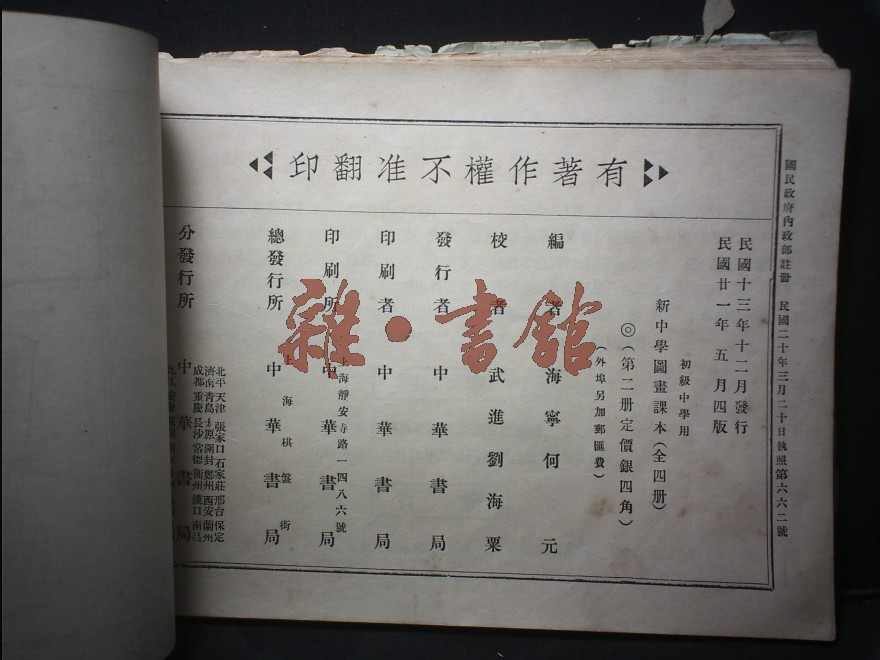 有著作權不准翻印
國民政府內政部註冊 民國二十年三月二十日執照第六六二號
民國十三年十二月發行
民國廿一年五月四版
初級中學用
新中學圖畫課本(全四册)
◎(第二册定價銀四角)
(外埠另加郵匯費)
編者 海寧何元
校者 武進劉海粟
發行者 中華書局
印刷者 中華書局
上海靜安寺路一四八六號
印刷所 中華書局
上海棋盤街
總發行所 中華書局
分發行所 中華書局
北平天津張家口石家莊邢台保定
濟南青島太原開封鄭州西安蘭州
成都重慶長沙常德衡州漢口南昌
雜·書館